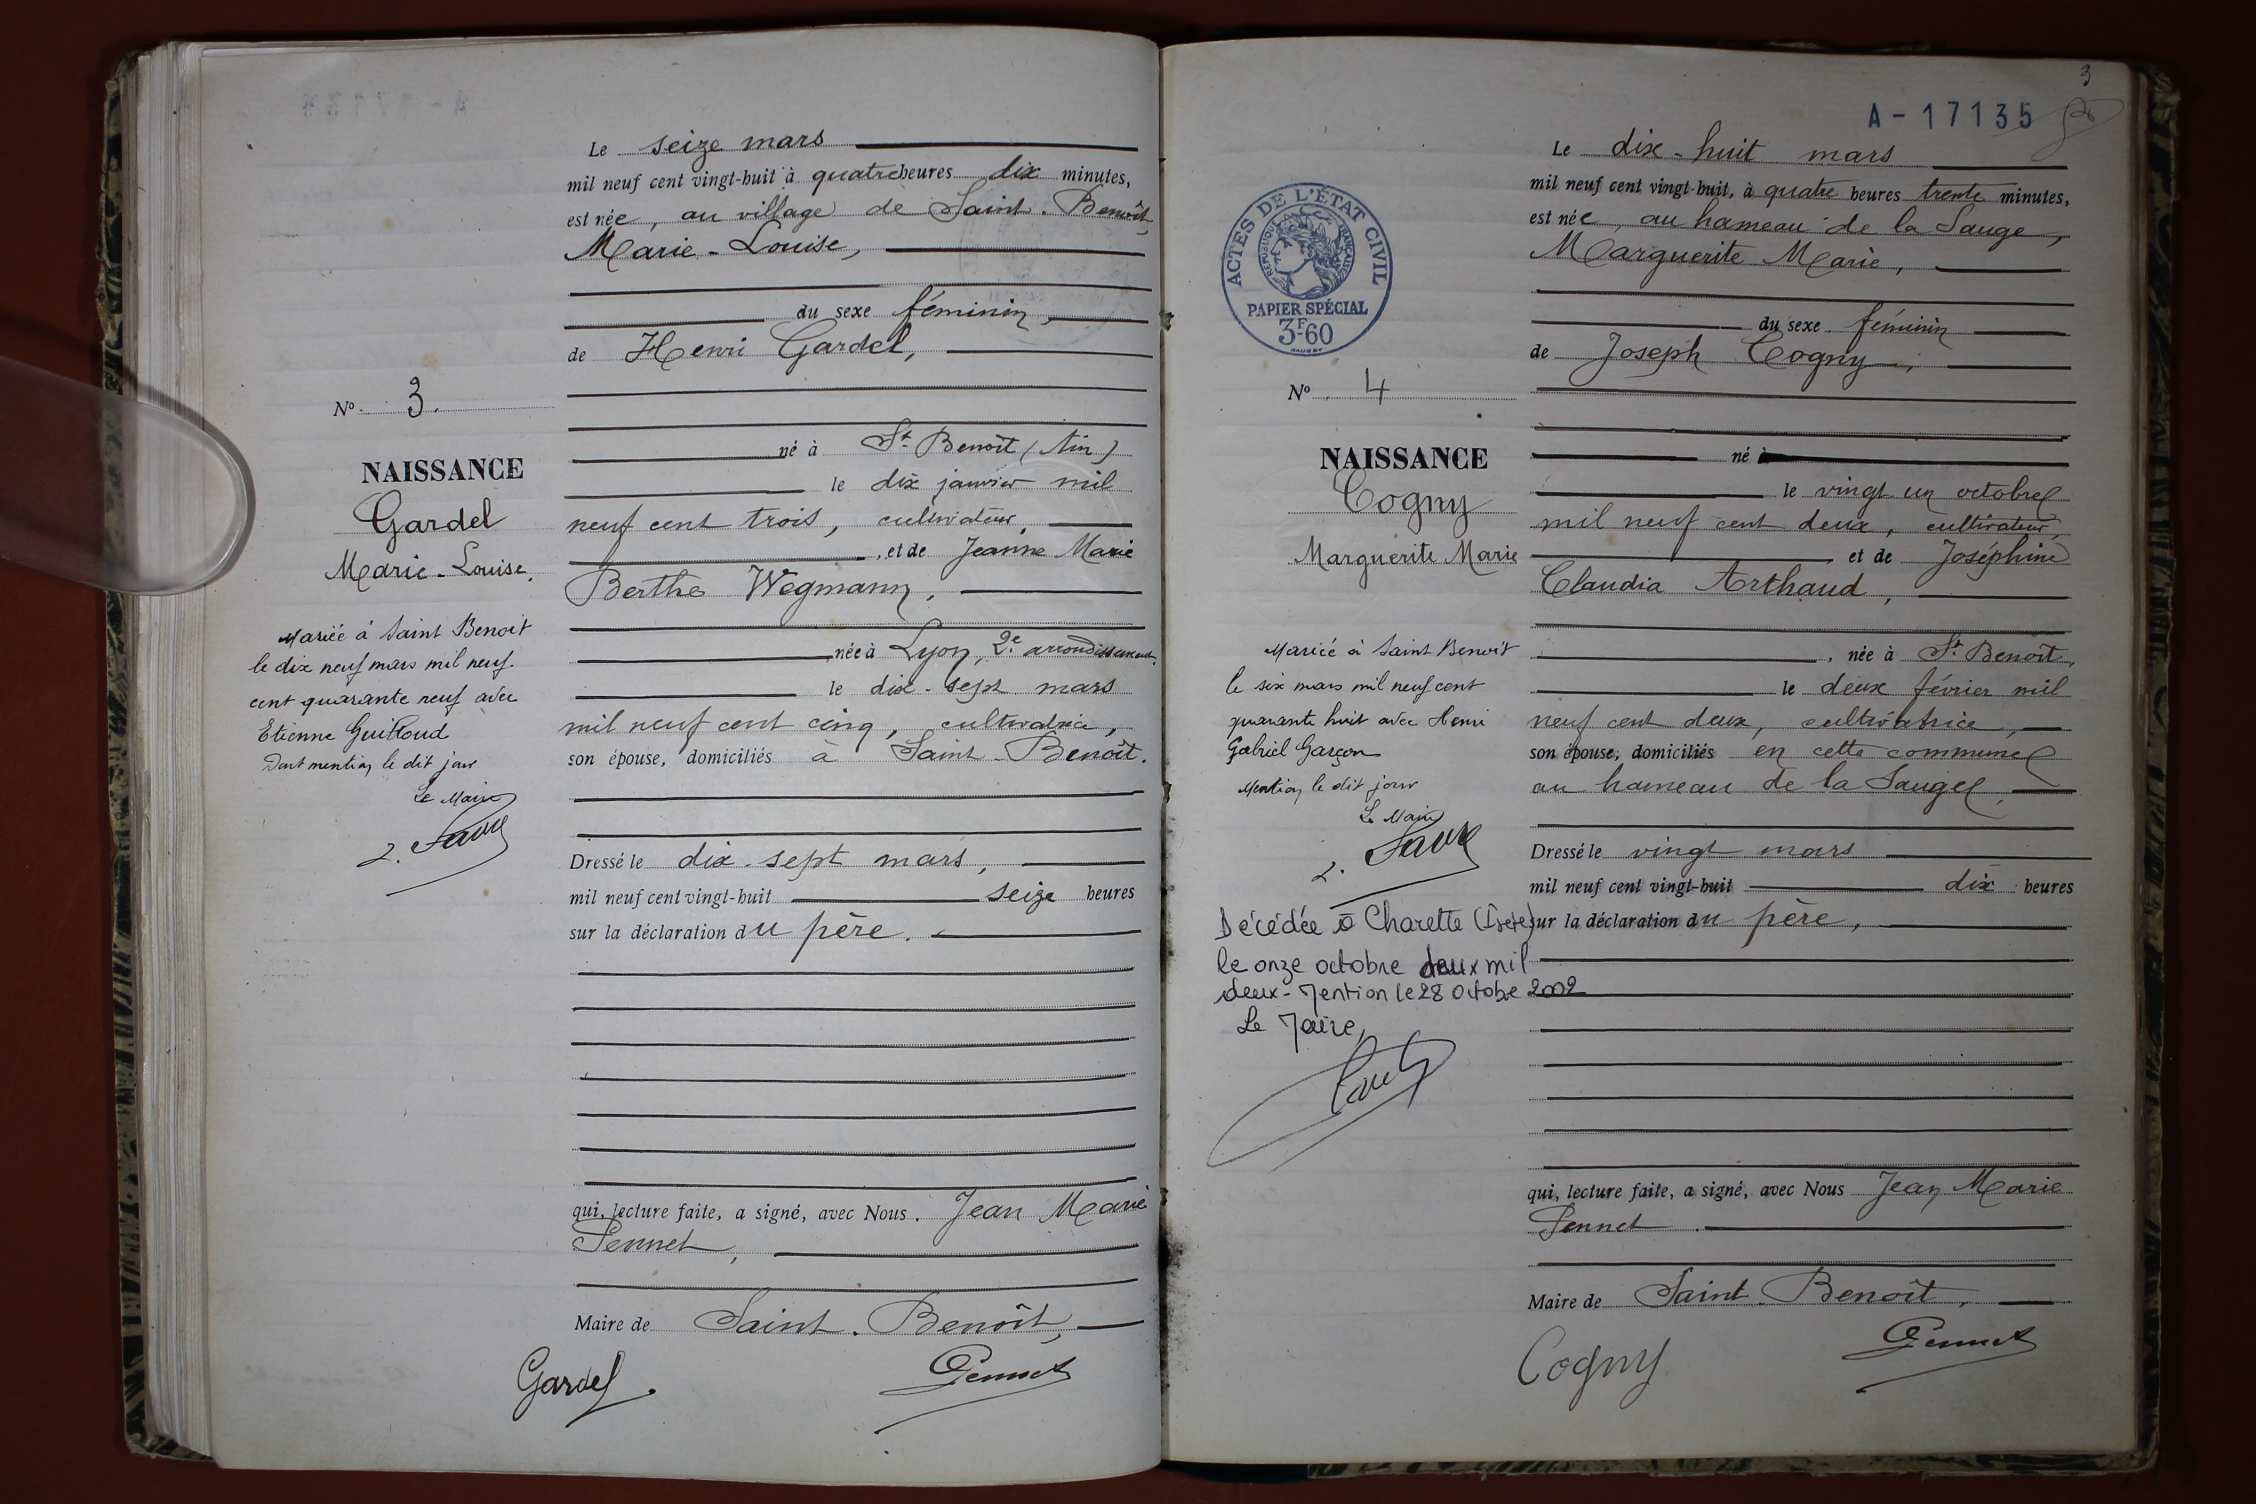 Le seize mars
mil neuf cent vingt-huit à quatre heures dix minutes,
est née, au village de Saint-Benoît,
Marie-Louise,
du sexe féminin,
de Henri Gardel,
né à St Benoît (Ain)
le dix janvier mil
neuf cent trois, cultivateur,
, et de Jeanne Marie
Berthe Wegmann,
née à Lyon, 2e arrondissement,
le dix-sept mars
mil neuf cent cinq, cultivatrice,
son épouse, domiciliés à Saint-Benoît.
Dressé le dix-sept mars,
mil neuf cent vingt-huit seize heures
sur la déclaration du père.
qui, lecture faite, a signé, avec Nous. Jean Marie
Pennet,
Maire de Saint-Benoît,
Gardel.
Pennet
No 3.
NAISSANCE
Gardel
Marie-Louise,
Mariée à Saint Benoit
le dix neuf mars mil neuf-
cent quarante neuf avec
Etienne Guilloud
Dont mention le dit jour
Le Maire
L. Favre
3
A-17135
ACTES DE L'ÉTAT CIVIL
RÉPUBLIQUE FRANÇAISE
PAPIER SPÉCIAL
3F60
No. 4
NAISSANCE
Cogny
Marguerite Marie
Mariée à Saint Benoit
le six mars mil neuf cent
quarante huit avec Henri
Gabriel Garçon
Mention le dit jour
Le Maire
L. Favre
Décédée à Charette (Isère)
le onze octobre deux mil
deux - Mention le 28 Octobre 2002
Le Maire,
Le dix-huit mars
mil neuf cent vingt-huit, à quatre heures trente minutes,
est née, au hameau de la Sauge,
Marguerite Marie,
du sexe féminin
de Joseph Cogny,
né à
le vingt un octobre
mil neuf cent deux, cultivateur
et de Joséphine
Claudia Arthaud,
, née à St Benoît,
le deux février mil
neuf cent deux, cultivatrice,
son épouse, domiciliés en cette commune
au hameau de la Sauge,
Dressé le vingt mars
mil neuf cent vingt-huit dix heures
sur la déclaration du père,
qui, lecture faite, a signé, avec Nous Jean Marie
Pennet.
Maire de Saint-Benoît,
Cogny
Pennet